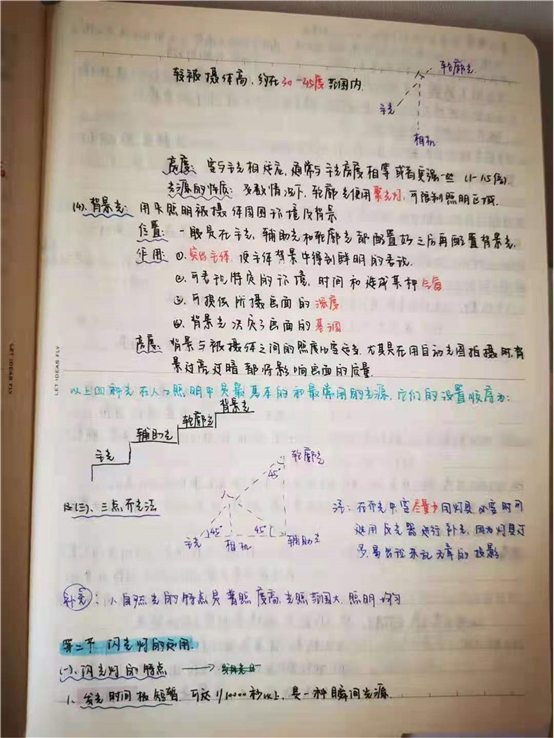 较被摄体高，约在30-45度范围内.
轮廓光
主光
相机
亮度：宜与主光相适应，通常与主光亮度相等或者更强一些（1-1.5倍）
光源的性质：多数情况下，轮廓光使用聚光灯，可限制照明区域.
(4).背景光：用来照明被摄体周围环境及背景
位置：一般是在主光、辅助光和轮廓光都配置好之后再配置背景光.
作用：①.突出主体，使主体背景中得到鲜明的表现.
②.可表现特定的环境，时间和造成某种气氛
③.可操纵所摄画面的深度
④.背景光决定了画面的基调
亮度：背景与被摄体之间的照度比宜适当.尤其是在用自动光圈拍摄时，背
景过亮过暗都将影响画面的质量.
以上四种光在人工照明中是最基本的和最常用的光源，它们的设置顺序为：
主光
辅助光
轮廓光
背景光
轮廓光
45°
(三)、三点布光法
注：在布光中宜尽量少用灯具，必要时可
使用反光器进行补光，因为灯具过
多，易出现杂乱无章的投影
主光
45°
相机
45°
辅助光
补充：1、自然光的特点是普照度高，光照范围大，照明均匀
第二节 闪光灯的应用.
(一)、闪光灯的特点
1、发光时间极短暂，可达1/10000秒以上，是一种瞬间光源.
LET IDEAS FLY
LET IDEAS FLY